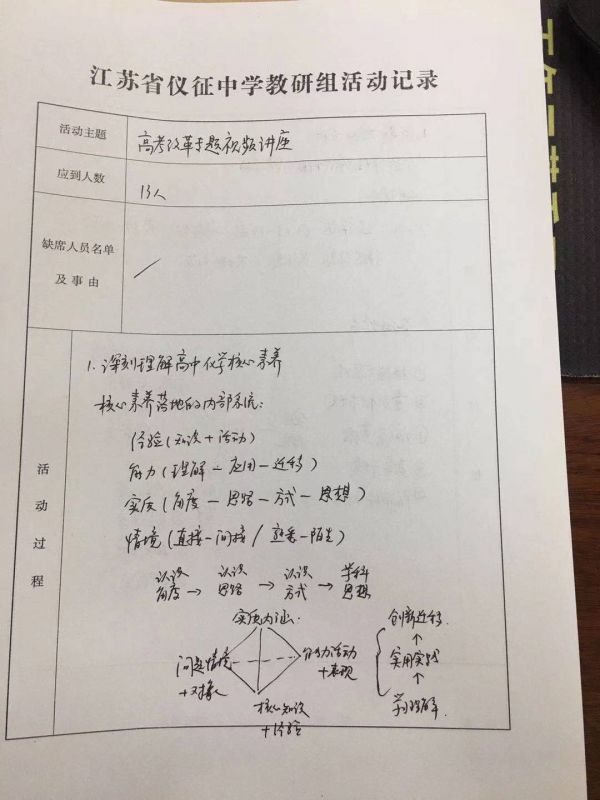 江苏省仪征中学教研组活动记录
活动主题
高考改革专题视频讲座
应到人数
13人
缺席人员名单
及事由
活动过程
1. 深刻理解高中化学核心素养
核心素养落地的内部系统:
经验(知识+活动)
能力(理解-应用-迁移)
实质(角度-思路-方式-思想)
情境(直接-间接/熟悉-陌生)
认识角度→认识思路→认识方式→学科思想
实质内涵
问题情境+对象
能力活动+表现
核心知识+经验
创新迁移
↑
实用实践
↑
学习理解